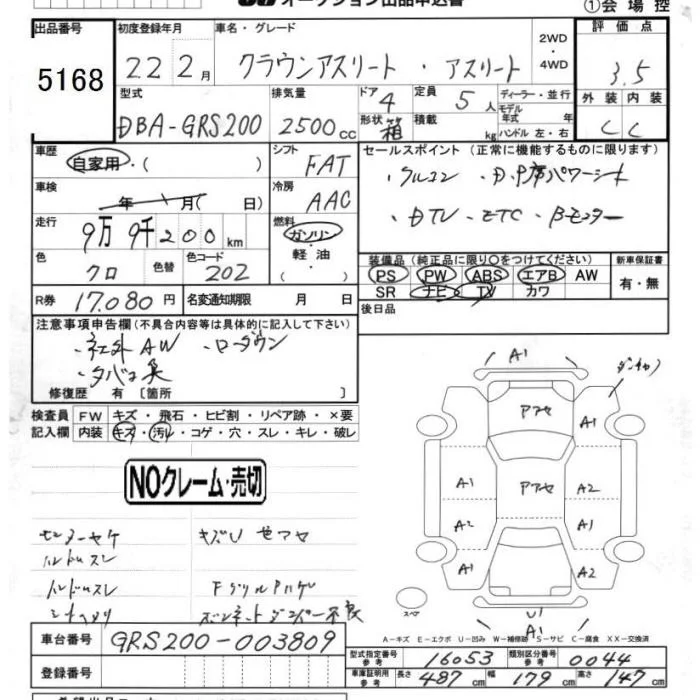 オークション出品申込書 ①会場控
出品番号 初度登録年月 車名・グレード 2WD・4WD 評価点
5168 22 2月 クラウンアスリート・アスリート 3.5
型式 排気量 ドア 4 定員 5人 ディーラー・並行 外装 内装
DBA-GRS200 2500cc 形状 箱 積載 kg モデル年式 年 ハンドル 左・右 C C
車歴 自家用・( ) シフト FAT セールスポイント (正常に機能するものに限ります)
車検 年 月( 日) 冷房 AAC ・クルコン ・D,P席パワーシート
走行 9万9千200km 燃料 ガソリン・軽油・( ) ・DTV ・ETC ・Bモニター
色 クロ 色替 色コード 202 装備品 (純正品に限り○をつけてください) 新車保証書
PS PW ABS エアB AW 有・無
SR ナビ TV カワ
R券 17,080円 名変通知期限 月 日 後日品
注意事項申告欄 (不具合内容等は具体的に記入して下さい)
・社外AW ・ローダウン
・タバコ臭
修復歴 有 [箇所 ]
検査員 FW キズ・飛石・ヒビ割・リペア跡・×要
記入欄 内装 キズ・汚れ・コゲ・穴・スレ・キレ・破レ
NOクレーム・売切
A1
アアセ A1
A1 アアセ A2
A2 A1
A1 A2
スペア U1
A1
ハンドルスレ
A-キズ E-エクボ U-凹み W-補修跡 S-サビ C-腐食 XX-交換済
車台番号 GRS200-003809
型式指定番号 参考 16053 類別区分番号 参考 0044
登録番号 車庫証明用 参考 長さ 487cm 幅 179cm 高さ 147cm